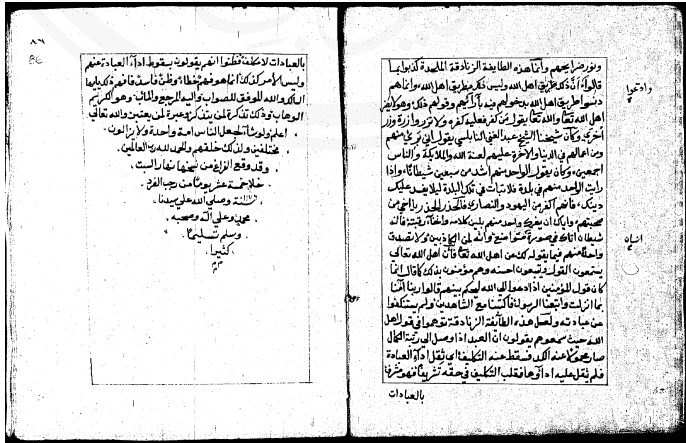 ونور ضرايحهم واما هذه الطايفة الزنادقة الملحدة كذبوا بما
قالوا ان ذكر طريق اهل الله وليس ذكر طريق اهل الله وانما هم
دنسوا طريق اهل الله بدخولهم فيه بآرائهم وقولهم ذكر وهو كفر
اهل الله تعالى والله تعالى يقول من كفر فعليه كفره ولا تزر وازرة وزر
اخرى وكان شيخنا الشيخ عبد الغني النابلسي يقول اني بريء منهم
ومن اعمالهم في الدنيا والاخرة عليهم لعنة الله والملايكة والناس
اجمعين وكان يقول الواحد منهم اشد من سبعين شيطانا واذا
رايت الواحد منهم في بلدة فلا تبات في تلك البلدة ليلا يفسد عليك
دينك فانهم اكفر من اليهود والنصارى فالحذر الحذر يا اخي من
صحبتهم واياك ان يغرك واحد منهم بلين كلامه فانه
شيطان اتاك في صورة وانه لمن الكاذبين ولا تصدق
واحدا منهم فيما يقوله عن اهل الله تعالى فان اهل الله تعالى
يستمعون القول ويتبعون احسنه وهم مؤمنون بذلك كما قال انما
كان قول المؤمنين اذا دعوا الى الله ليحكم بينهم قالوا ربنا امنا
بما انزلت واتبعنا الرسول فاكتبنا مع الشاهدين ولم يستنكفوا
من عبادته ولعل هذه الطائفة الزنادقة توهموا في قول اهل
الله حيث سمعوهم يقولون ان العبد اذا وصل الى رتبة الكمال
صار محمولا عنه الكد فسقط عنه التكليف اي ثقل اداء العبادة
فلم يثقل عليه اداؤها فقلب التكليف في حقه تشريفا فهو مشرف
بالعبادات
٨٦
86
بالعبادات لا مكلف فظنوا انهم يقولون بسقوط اداء العبادة عنهم
وليس الامر كذلك انما هو فهم خطاء وظن فاسد فافهم ذلك يا ايها
السالك والله الموفق للصواب واليه المرجع والمآب وهو الكريم
الوهاب وفي ذلك تذكرة لمن يتذكر وعبرة لمن يعتبر والله تعالى
اعلم ولو شاء لجعل الناس امة واحدة ولا يزالون
مختلفين ولذلك خلقهم والحمد لله رب العالمين
وقد وقع الفراغ من نسخها نهار السبت
خلا خمسة عشر يوما من رجب الفرد
سنة وصلى الله على سيدنا
محمد وعلى آله وصحبه
وسلم تسليما
كثيرا